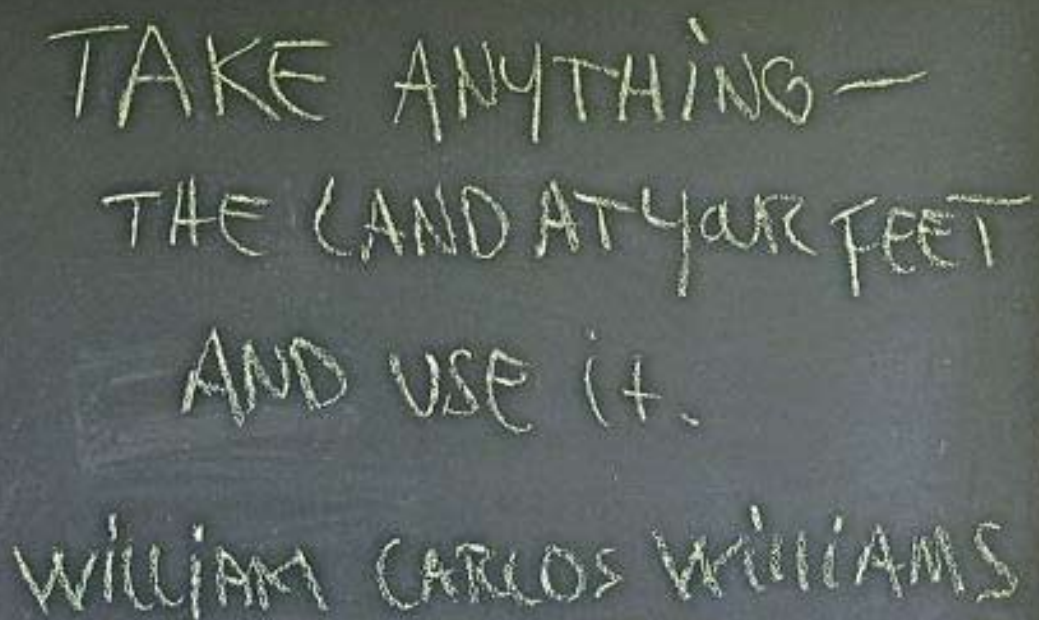 TAKE ANYTHING—
THE LAND AT YOUR FEET
AND USE it.
WilliAM CARLOS WilliAMS